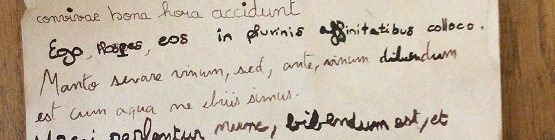 convivae bona hora accidunt
Ego, Hospes, eos in plurinis affinitatibus colloco.
Manto servare vinum, sed, ante, vinum diluendum
est cum aqua ne ebriis simus.
perlentur nunc, bibendum est, et